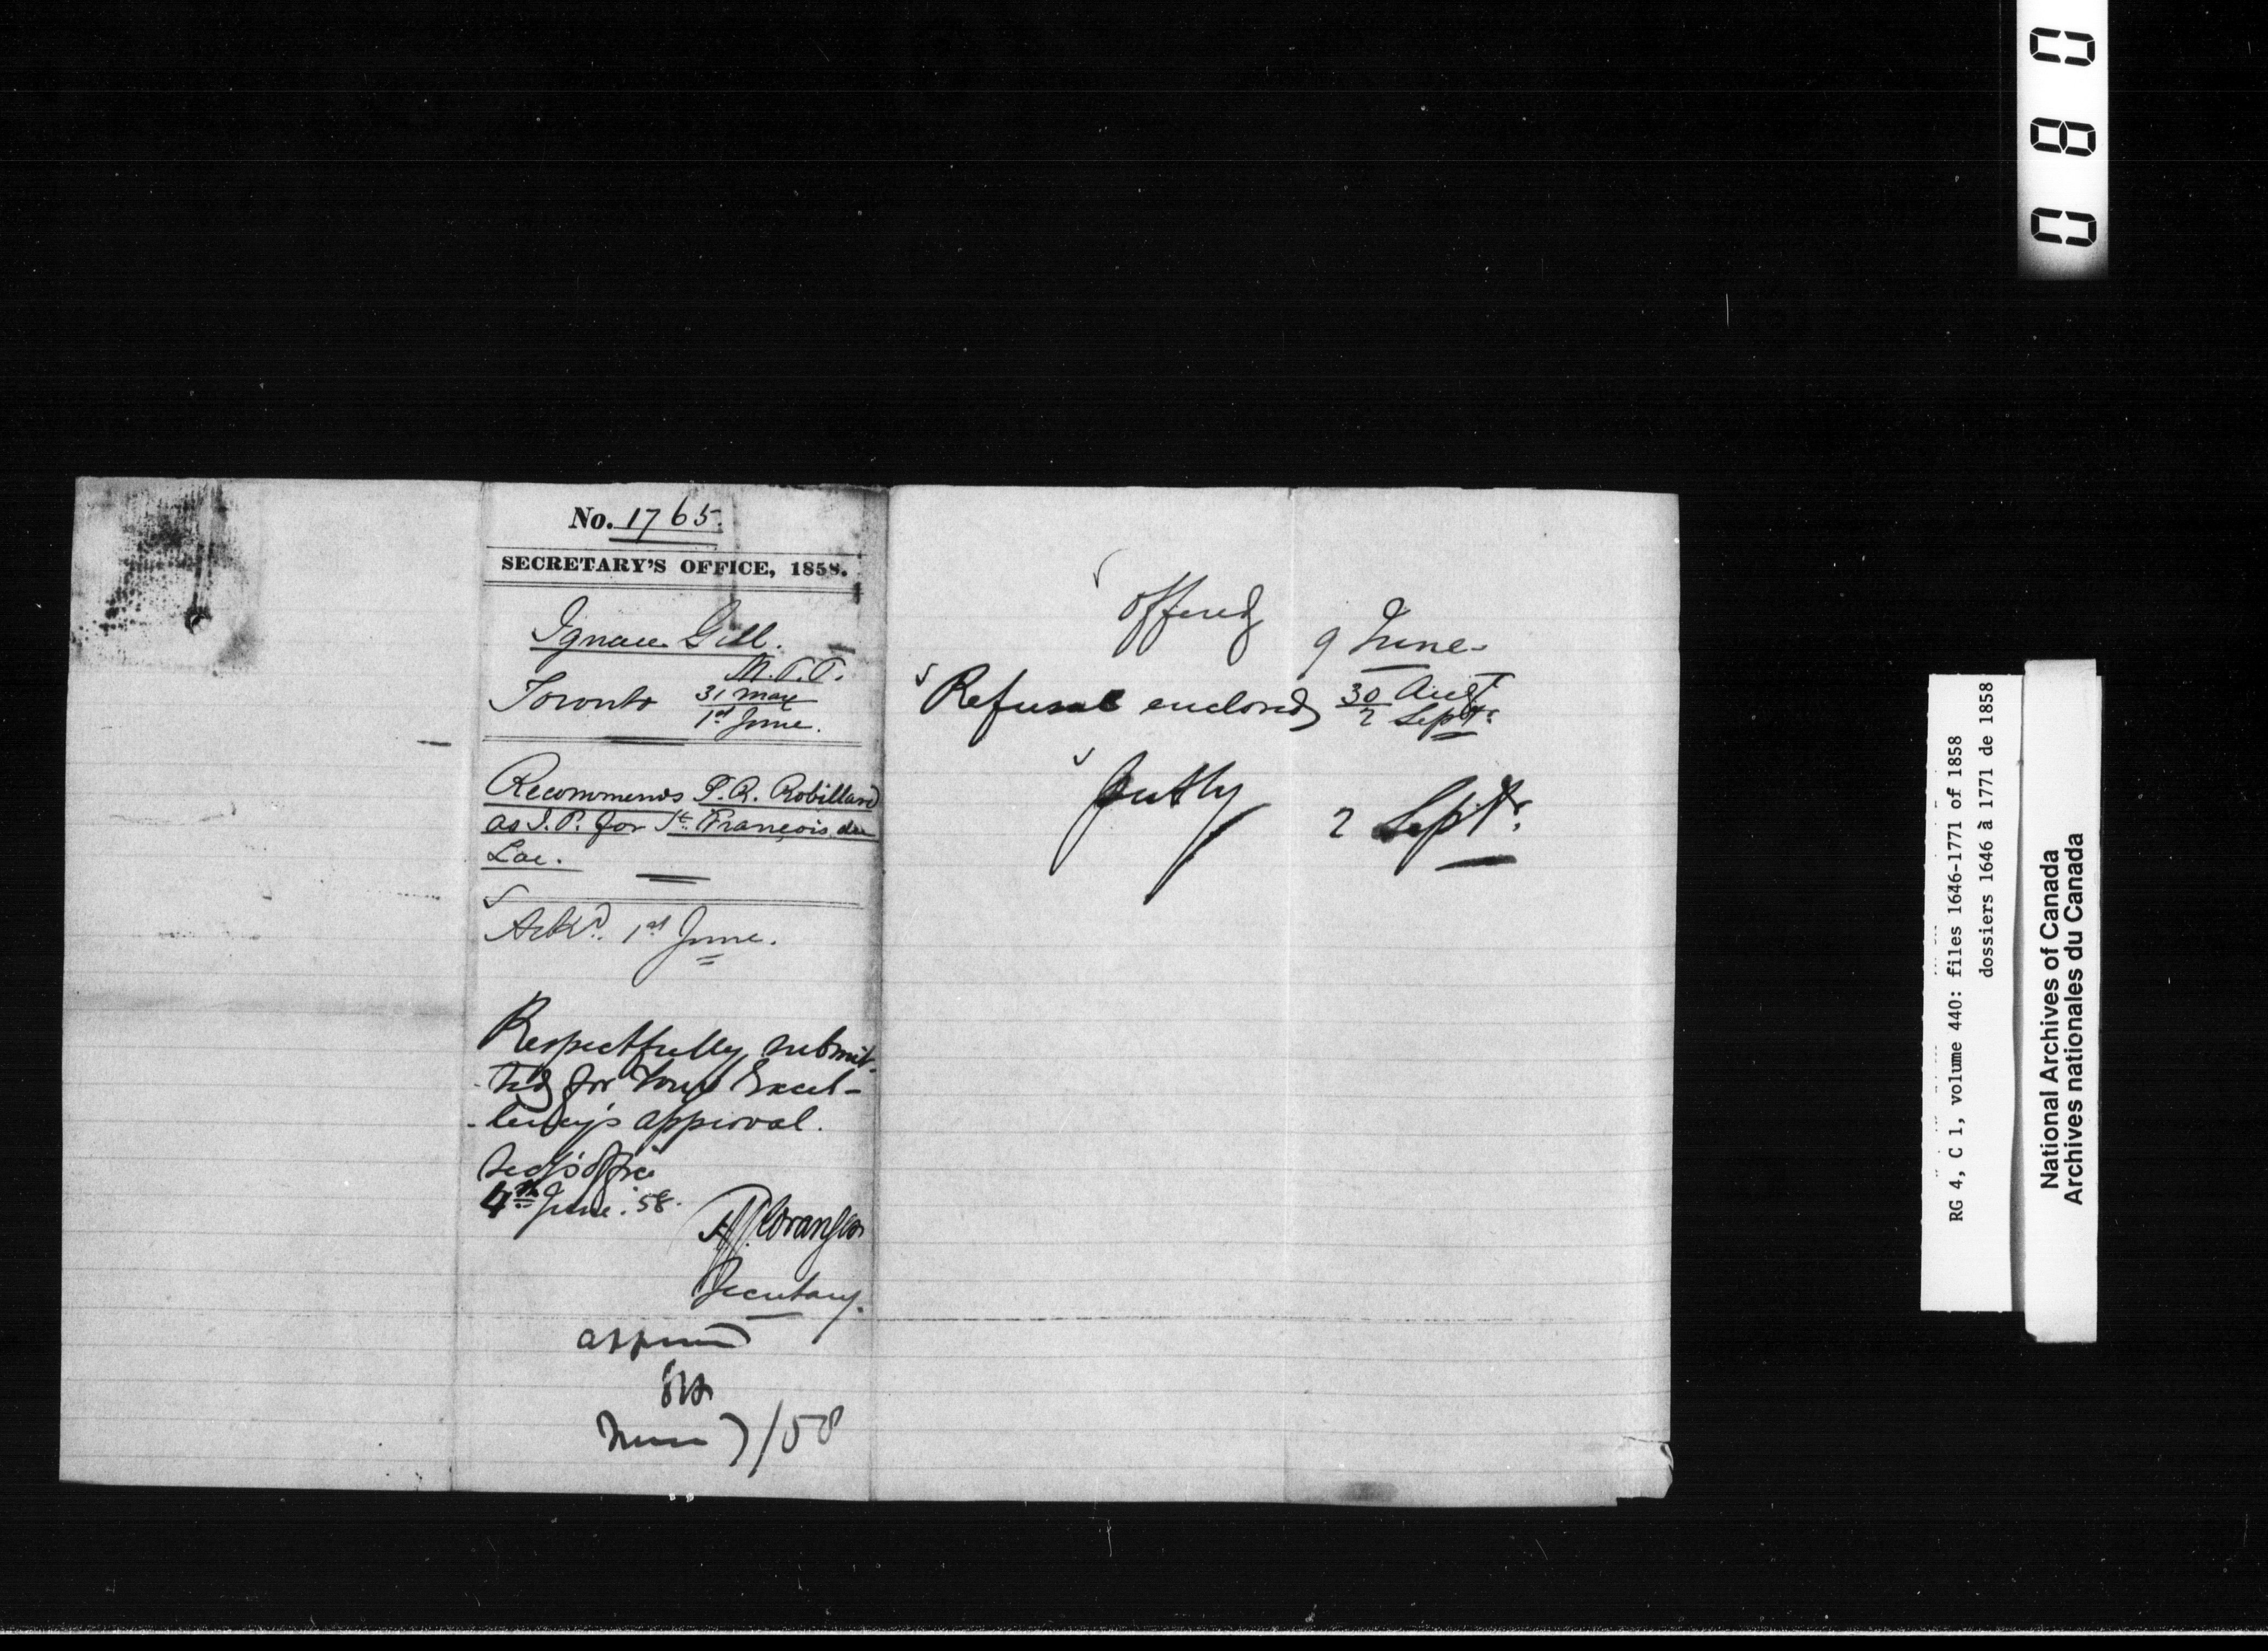 No. 1765.
SECRETARY'S OFFICE, 1858.
Ignace Gill.
M.P.P.
Toronto 31 May
1st June.
Recommends P.R. Robillard
as J.P. for St. François du
Lac.
Ackd. 1st June.
Respectfully submit-
-ted for Your Excel-
-lency's approval.
Secy's office
4th June. 58.
Secretary.
approved
June 7/58
offered 9 June
Refusal enclosed 30 Augt
2 Septr.
2 Septr.
080
RG 4, C 1, volume 440: files 1646-1771 of 1858
dossiers 1646 à 1771 de 1858
National Archives of Canada
Archives nationales du Canada